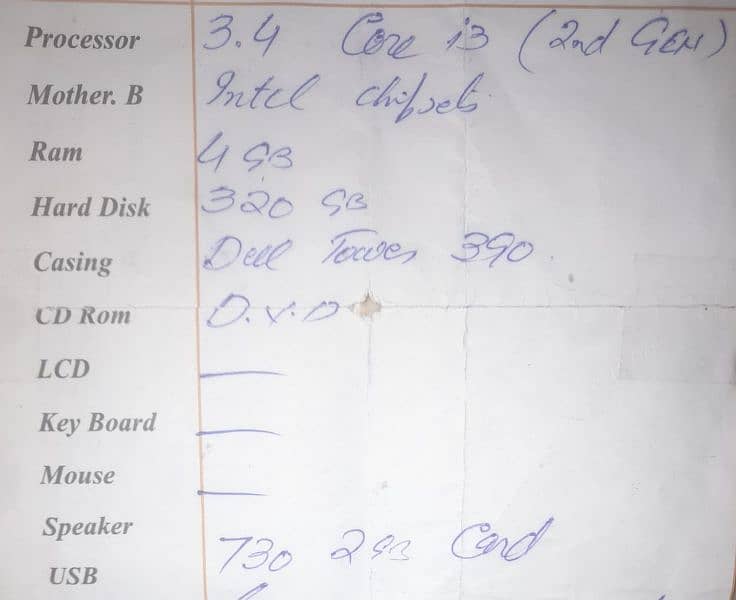 Processor 3.4 Core i3 (2nd GEN)
Mother. B Intel chipsets
Ram 4 GB
Hard Disk 320 GB
Casing Dell Tower 390
CD Rom D.V.D
LCD —
Key Board —
Mouse —
Speaker
730 2GB Card
USB